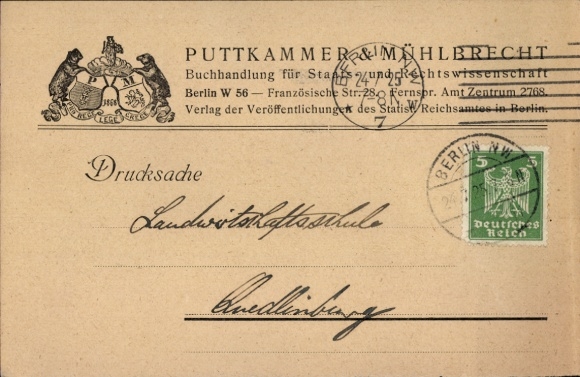 PUTTKAMMER & MÜHLBRECHT
Buchhandlung für Staats- und Rechtswissenschaft
Berlin W 56 — Französische Str. 28. Fernspr. Amt Zentrum 2768.
Verlag der Veröffentlichungen des Statist. Reichsamtes in Berlin.
P M
1868
LEGE
BERLIN N.W.
24.7.25
7-8 N
* 7 W
Drucksache
BERLIN N.W.
5 5
Deutsches
Reich
Landwirtschaftsschule
Quedlinburg